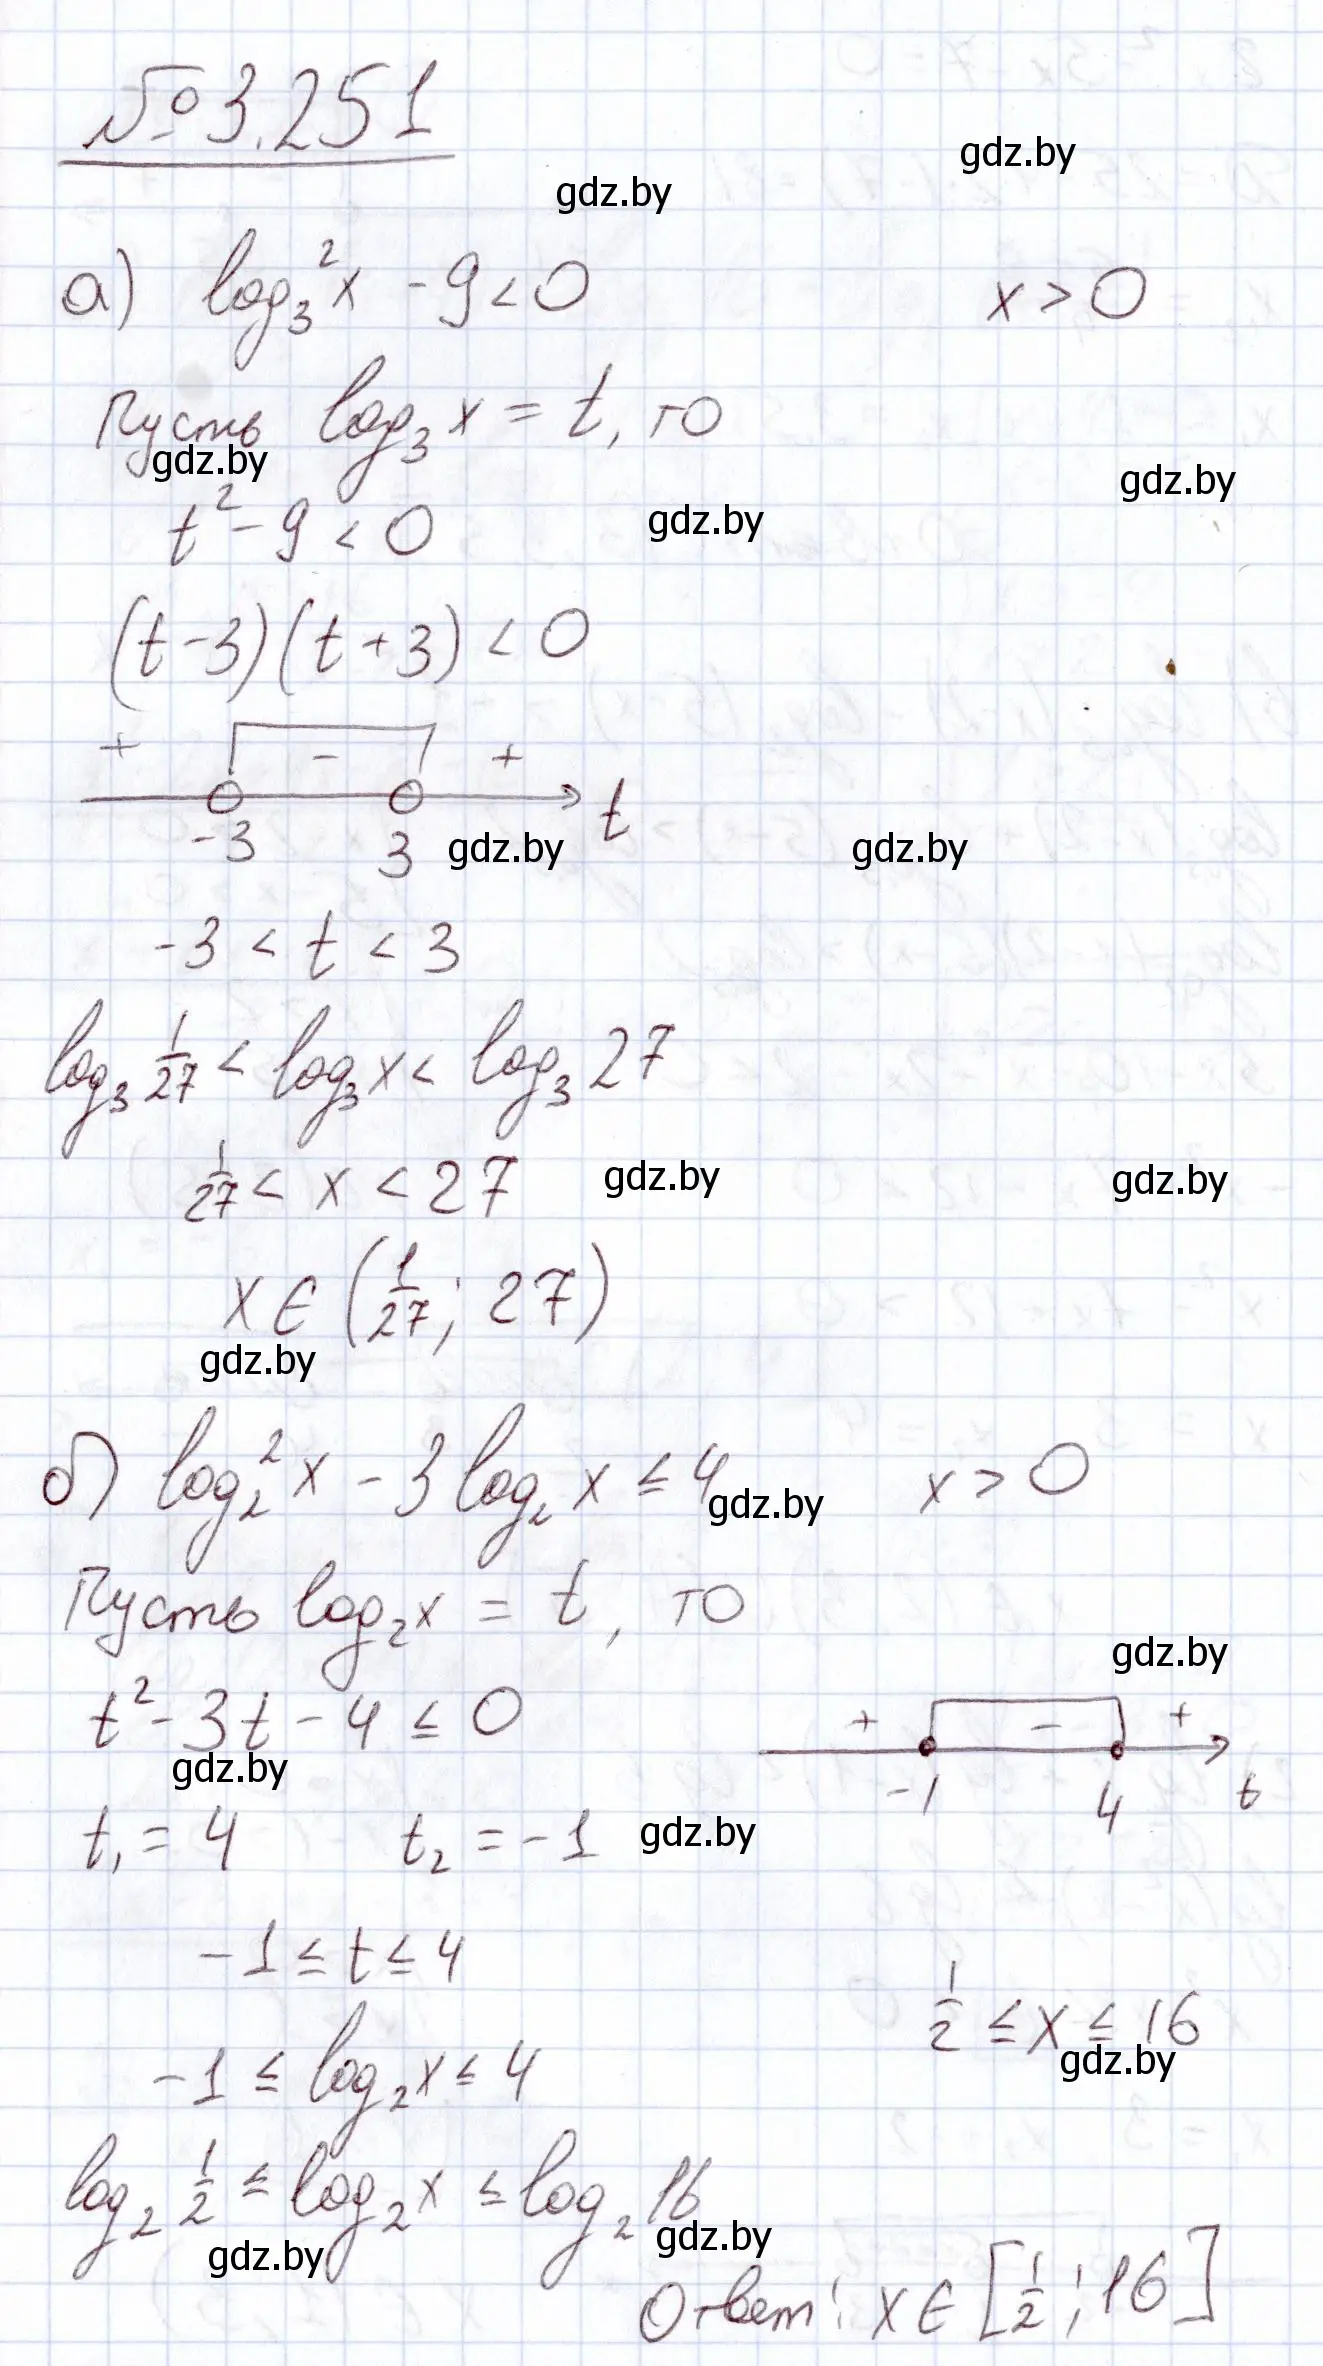 № 3.251
gdz.by
gdz.by
а) log₃²x - 9 < 0    x > 0
Пусть log₃x = t, то
gdz.by
gdz.by
t² - 9 < 0
gdz.by
(t - 3)(t + 3) < 0
+ - +
-3 3 t
gdz.by gdz.by
-3 < t < 3
log₃ 1/27 < log₃x < log₃ 27
1/27 < x < 27
gdz.by gdz.by
x ∈ (1/27; 27)
gdz.by
б) log₂²x - 3 log₂x ≤ 4    x > 0
gdz.by
Пусть log₂x = t, то
gdz.by
t² - 3t - 4 ≤ 0
+ - +
-1 4 t
gdz.by
t₁ = 4    t₂ = -1
gdz.by
-1 ≤ t ≤ 4
-1 ≤ log₂x ≤ 4
log₂ 1/2 ≤ log₂x ≤ log₂ 16
gdz.by
gdz.by
1/2 ≤ x ≤ 16
gdz.by
Ответ: x ∈ [1/2; 16]